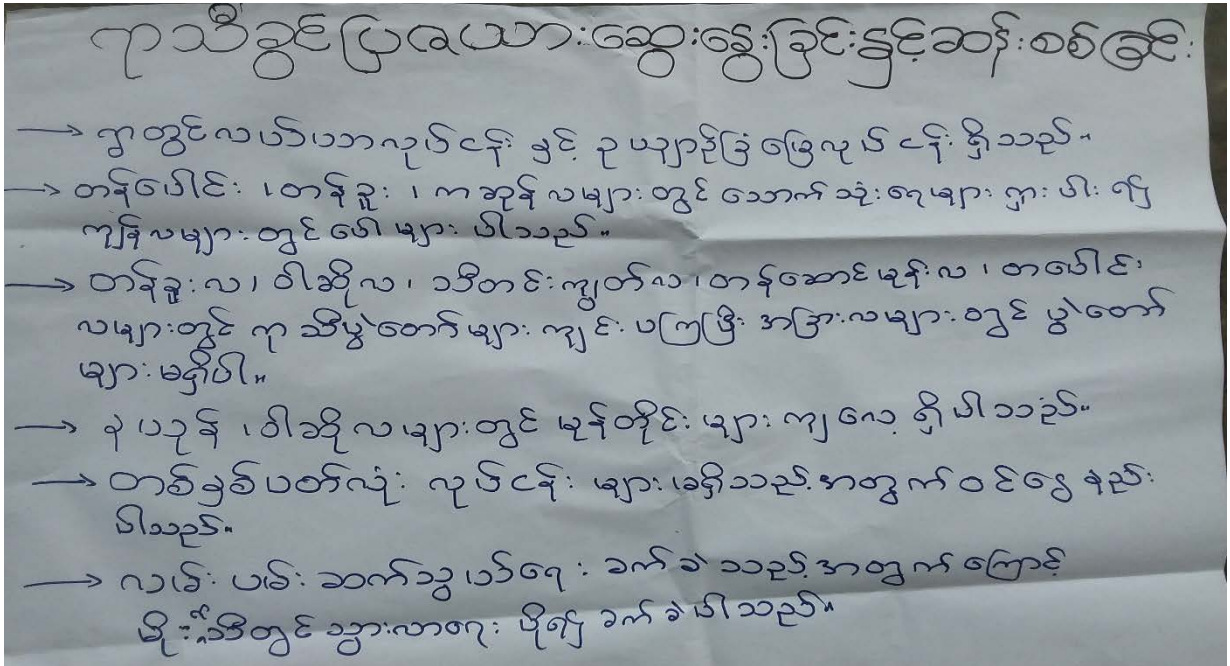 ရာသီခွင်ပြဇယားဆွေးနွေးခြင်းနှင့်ဆန်းစစ်ခြင်း
→ ရွာတွင်လယ်ယာလုပ်ငန်း နှင့် ဥယျာဉ်ခြံမြေလုပ်ငန်း ရှိသည်။
→ တန်ပေါင်း ၊ တန်ခူး ၊ ကဆုန်လများ တွင် သောက်သုံးရေများ ရှားပါး ၍
ကျန်လများ တွင် ပေါများ ပါသည်။
→ တန်ခူးလ၊ ဝါဆိုလ၊ သီတင်းကျွတ်လ၊ တန်ဆောင်မုန်းလ ၊ တပေါင်း
လများတွင် ရာသီပွဲတော်များ ကျင်းပကြပြီး အခြားလများ တွင် ပွဲတော်
များ မရှိပါ။
→ နယုန် ၊ ဝါဆိုလများတွင် မုန်တိုင်း များ ကျလေ့ ရှိပါသည်။
→ တစ်နှစ်ပတ်လုံး လုပ်ငန်း များ မရှိသည့်အတွက် ဝင်ငွေ နည်း
ပါသည်။
→ လမ်း ပမ်း ဆက်သွယ်ရေး ခက်ခဲ သည့်အတွက်ကြောင့်
မိုးရာသီတွင် သွားလာရေး ပို၍ ခက်ခဲပါသည်။